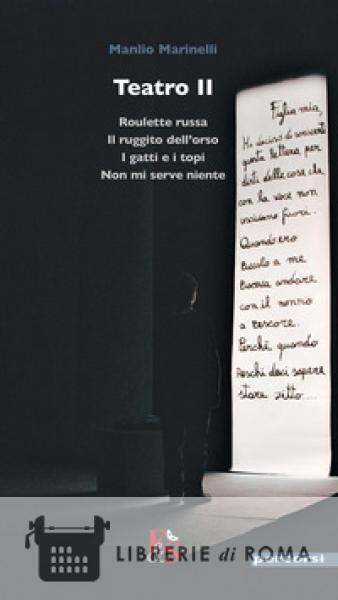 Manlio Marinelli
Teatro II
Roulette russa
Il ruggito dell'orso
I gatti e i topi
Non mi serve niente
Figlia mia,
Ho deciso di scriverti
questa lettera per
dirti delle cose che
con la voce non
uscivano fuori.
Quando ero
piccolo a me
piaceva andare
con il nonno
a pescare.
Perché quando
peschi devi sapere
stare zitto....
LIBRERIE di ROMA
percorsi